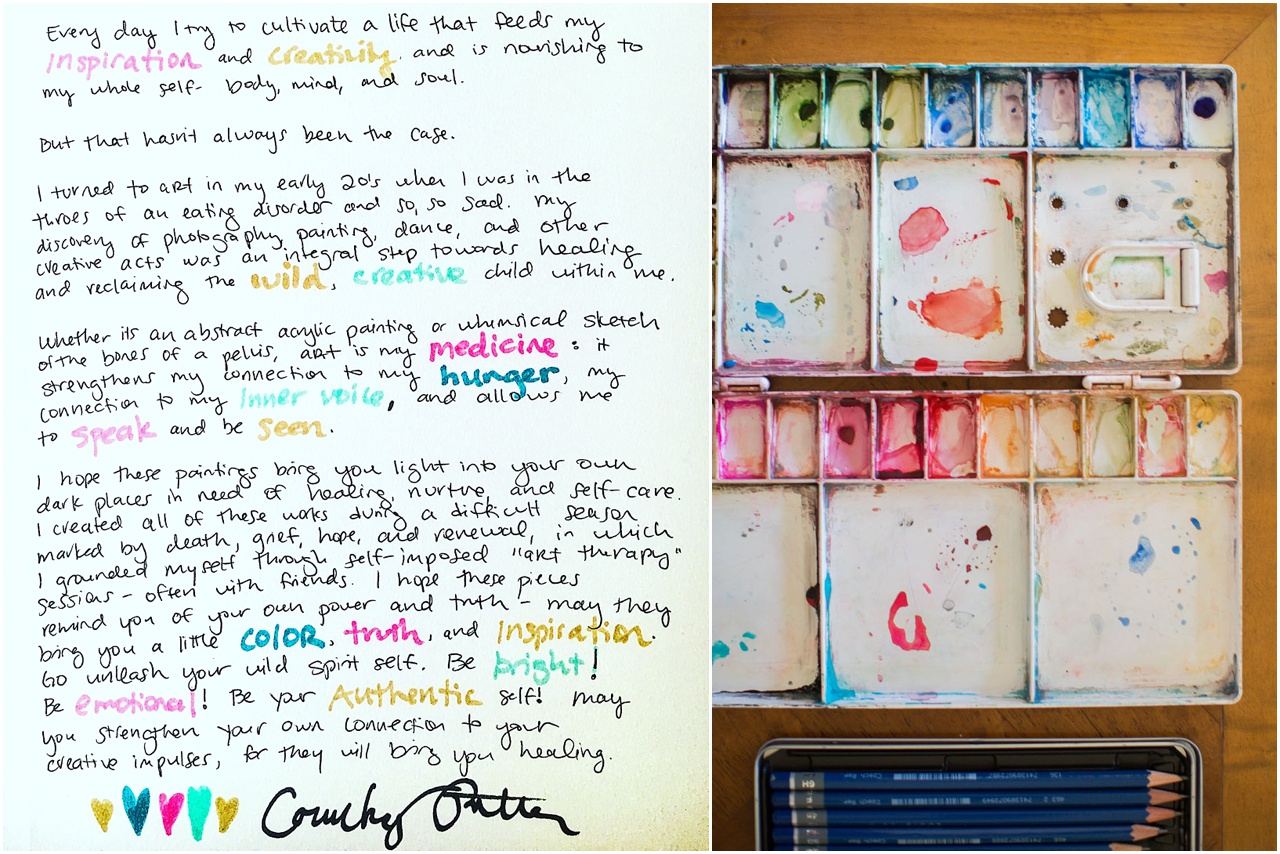 Every day I try to cultivate a life that feeds my
inspiration and creativity. and is nourishing to
my whole self- body, mind, and soul.
But that hasn't always been the case.
I turned to art in my early 20's when I was in the
throes of an eating disorder and so, so sad. My
discovery of photography, painting, dance, and other
creative acts was an integral step towards healing
and reclaiming the wild, creative child within me.
Whether its an abstract acrylic painting or whimsical sketch
of the bones of a pelvis, art is my medicine: it
strengthens my connection to my hunger, my
connection to my inner voice, and allows me
to speak and be seen.
I hope these paintings bring you light into your own
dark places in need of healing, nurture, and self-care.
I created all of these works during a difficult season
marked by death, grief, hope, and renewal, in which
I grounded myself through self-imposed "art therapy"
sessions - often with friends. I hope these pieces
remind you of your own power and truth - may they
bring you a little color, truth, and Inspiration.
Go unleash your wild spirit self. Be bright!
Be emotional! Be your Authentic self! May
you strengthen your own connection to your
creative impulses, for they will bring you healing.
Courtney